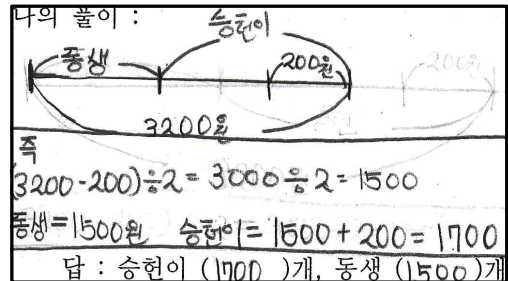 나의 풀이 :
승헌이
동생
200원
3200원
즉
(3200-200)÷2=3000÷2=1500
동생=1500원 승헌이=1500+200=1700
답 : 승헌이 (1700 )개, 동생 (1500)개